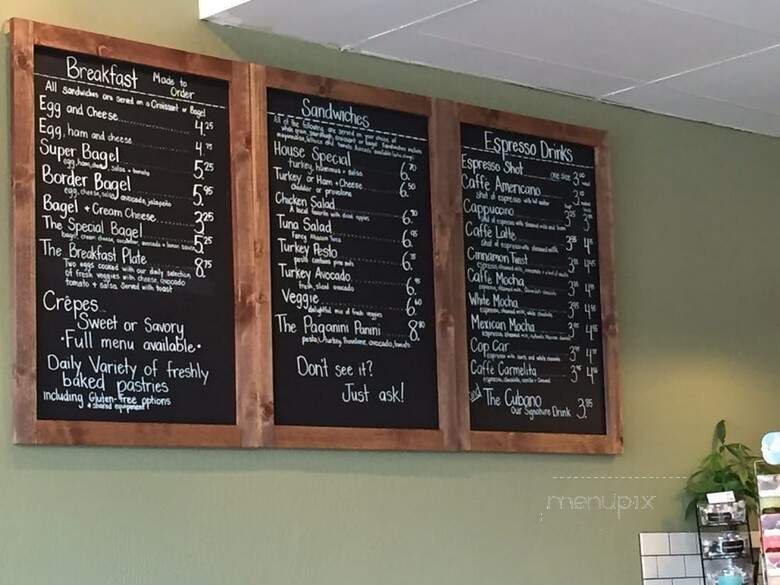 Breakfast Made to Order
All sandwiches are served on a Croissant or Bagel
Egg and Cheese 4.25
Egg, ham and cheese 4.75
Super Bagel 5.25
egg, ham, salsa + tomato
Border Bagel 5.95
egg, cheese, salsa, avocado, jalapeño
Bagel + Cream Cheese 3.25
The Special Bagel 5.25
bagel, cream cheese, cucumber, avocado + lemon
The Breakfast Plate 8.75
Two eggs cooked with our daily selection
of fresh veggies with cheese, avocado
tomato + salsa. Served with toast
Crêpes
Sweet or Savory
• Full menu available •
Daily Variety of freshly
baked pastries
including Gluten-Free options
* shared equipment!
Sandwiches
All of the following are served on your choice of
whole grain, sourdough, croissant or bagel. Sandwiches include
mayonnaise, lettuce and tomato.
House Special 6.70
turkey, hummus + salsa
Turkey or Ham + Cheese 6.50
cheddar or provolone
Chicken Salad 6.
A local favorite with diced apples
Tuna Salad 6.
Fancy Albacore Tuna
Turkey Pesto 6.
pesto contains pine nuts
Turkey Avocado 6.
fresh, sliced avocado
Veggie 6.60
delightful mix of fresh veggies
The Paganini Panini 8.
pesto, turkey, provolone, avocado, tomato
Don't see it?
Just ask!
Espresso Drinks
Espresso Shot one size
Caffé Americano
shot of espresso with hot water
Cappuccino
shot of espresso with steamed milk and foam
Caffé Latte
shot of espresso with steamed milk
Cinnamon Twist
Caffé Mocha
White Mocha
espresso, steamed milk, white chocolate
Mexican Mocha
Cop Car
espresso with dark and white chocolate
Caffé Carmelita
espresso, chocolate, vanilla + caramel
and The Cubano 3.95
Our Signature Drink
menupix